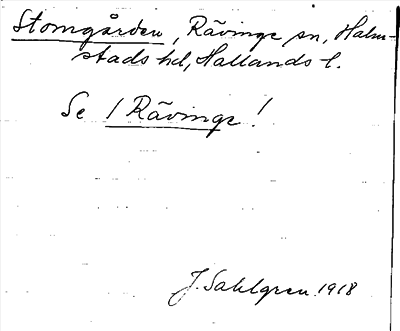 Stomgården, Rävinge sn, Halm-
stads hd, Hallands l.
Se 1 Rävinge!
J. Sahlgren 1918